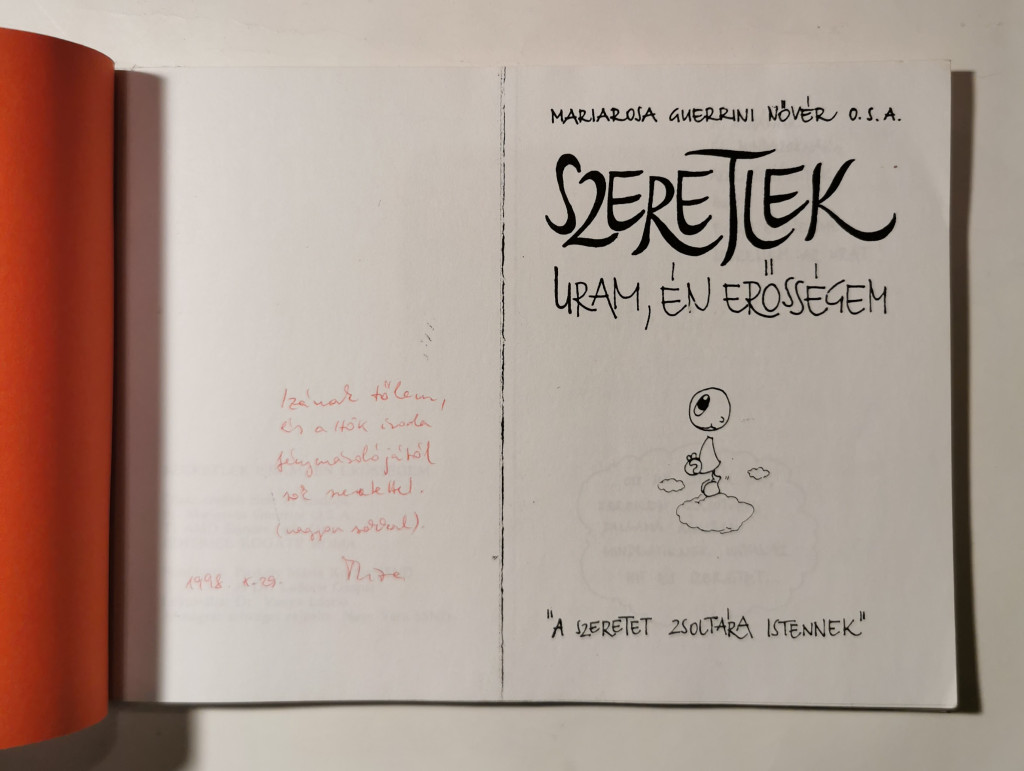 Izának tőlem,
és a Hök iroda
fénymásolójától
sok szeretettel.
(nagyon sokkal).
1998. X. 29.
MARIAROSA GUERRINI NŐVÉR O.S.A.
SZERETLEK
URAM, ÉN ERŐSSÉGEM
"A SZERETET ZSOLTÁRA ISTENNEK"